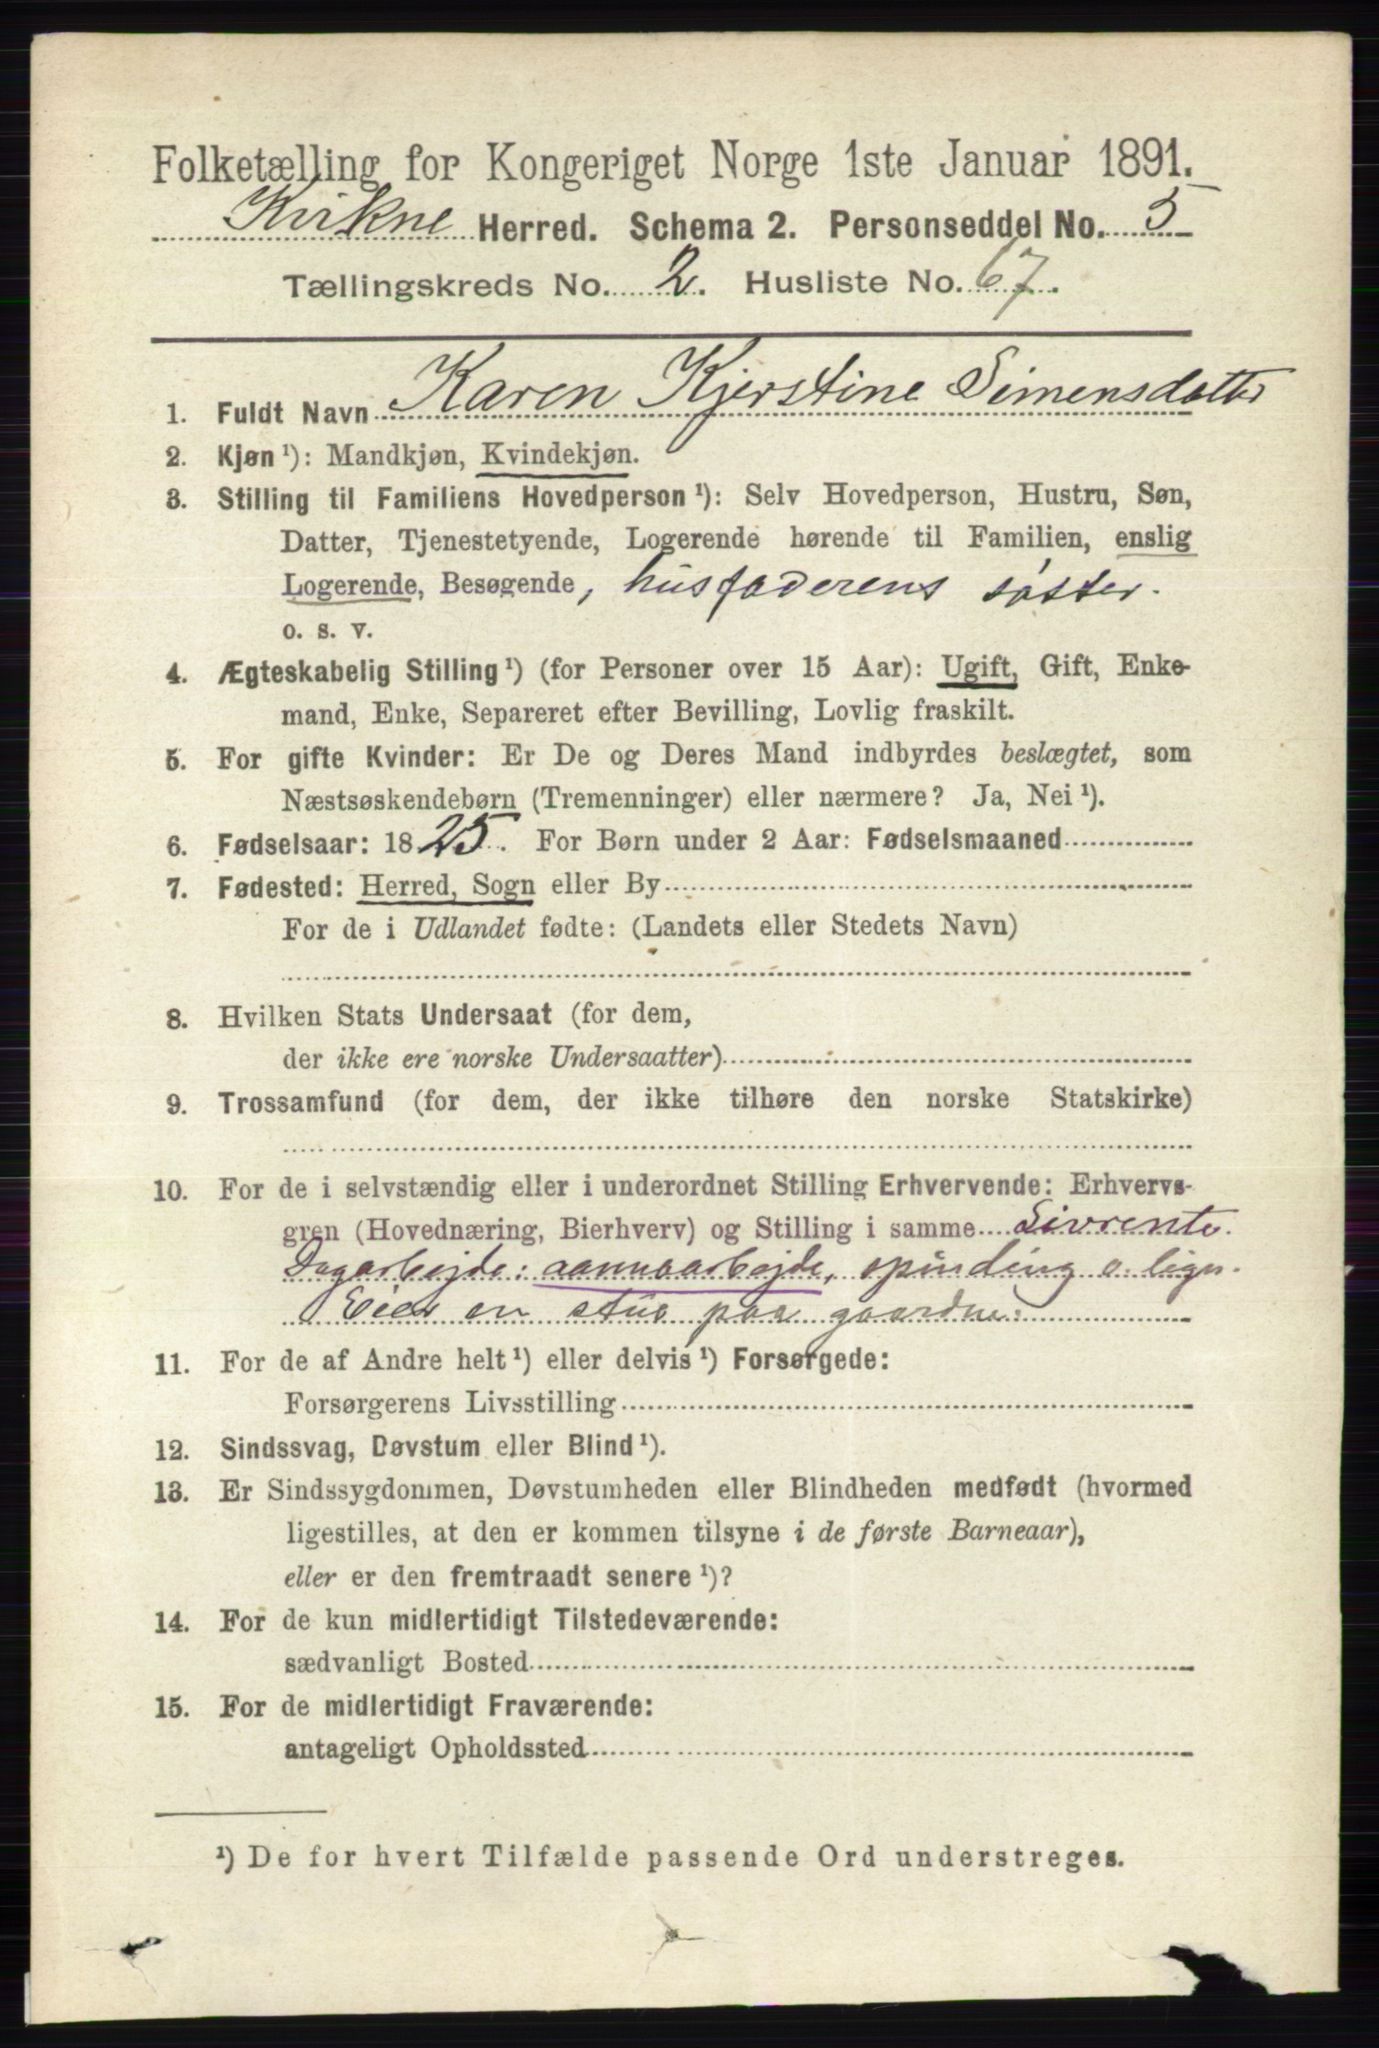 Folketælling for Kongeriget Norge 1ste Januar 1891.
Kvikne Herred. Schema 2. Personseddel No. 5
Tællingskreds No. 2. Husliste No. 67.
1. Fuldt Navn Karen Kjerstine Simensdatter
2. Kjøn ¹): Mandkjøn, Kvindekjøn.
3. Stilling til Familiens Hovedperson ¹): Selv Hovedperson, Hustru, Søn,
Datter, Tjenestetyende, Logerende hørende til Familien, enslig
Logerende, Besøgende, husfaderens søster.
o. s. v.
4. Ægteskabelig Stilling ¹) (for Personer over 15 Aar): Ugift, Gift, Enke-
mand, Enke, Separeret efter Bevilling, Lovlig fraskilt.
5. For gifte Kvinder: Er De og Deres Mand indbyrdes beslægtet, som
Næstsøskendebørn (Tremenninger) eller nærmere? Ja, Nei ¹).
6. Fødselsaar: 1825. For Børn under 2 Aar: Fødselsmaaned
7. Fødested: Herred, Sogn eller By
For de i Udlandet fødte: (Landets eller Stedets Navn)
8. Hvilken Stats Undersaat (for dem,
der ikke ere norske Undersaatter)
9. Trossamfund (for dem, der ikke tilhøre den norske Statskirke)
10. For de i selvstændig eller i underordnet Stilling Erhvervende: Erhvervs-
gren (Hovednæring, Bierhverv) og Stilling i samme Livrente.
Dagarbejde: aannaarbejde, spinding o. lign.
Eier en stue paa gaarden.
11. For de af Andre helt ¹) eller delvis ¹) Forsørgede:
Forsørgerens Livsstilling
12. Sindssvag, Døvstum eller Blind ¹).
13. Er Sindssygdommen, Døvstumheden eller Blindheden medfødt (hvormed
ligestilles, at den er kommen tilsyne i de første Barneaar),
eller er den fremtraadt senere ¹)?
14. For de kun midlertidigt Tilstedeværende:
sædvanligt Bosted
15. For de midlertidigt Fraværende:
antageligt Opholdssted
¹) De for hvert Tilfælde passende Ord understreges.